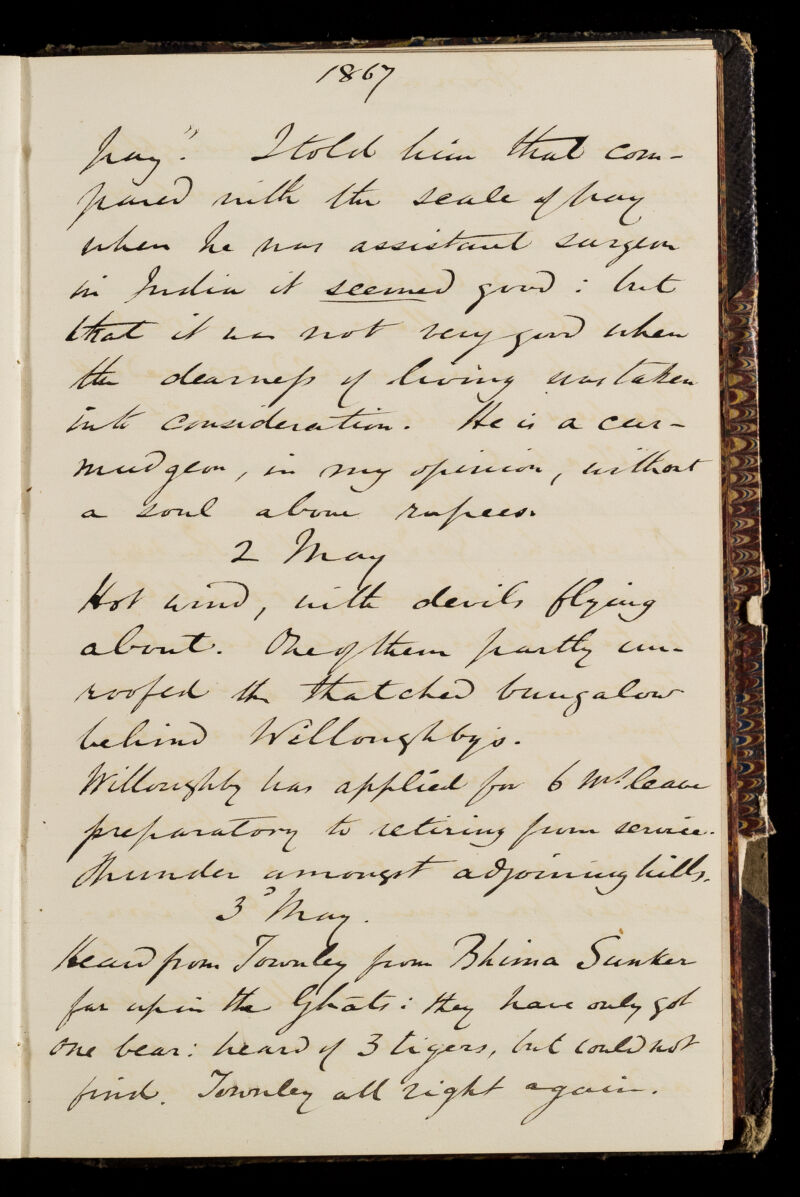 1867
pay". I told him that com-
pared with the scale of pay
when he was assistant surgeon
in India it seemed good : but
that it was not very good when
the dearness of living was taken
into consideration. He is a cur-
mudgeon, in my opinion, without
a soul above rupees.
2 May
Hot wind, with devils flying
about. One of them partly un-
roofed the thatched bungalow
behind Willoughby's.
Willoughby has applied for 6 Ms. leave
preparatory to retiring from service.
Thunder amongst adjoining hills.
3d May.
Heard from Townley from Bhima Sunker
far up in the Ghâts : they have only got
one bear : heard of 3 tigers, but could not
find. Townley all right again.